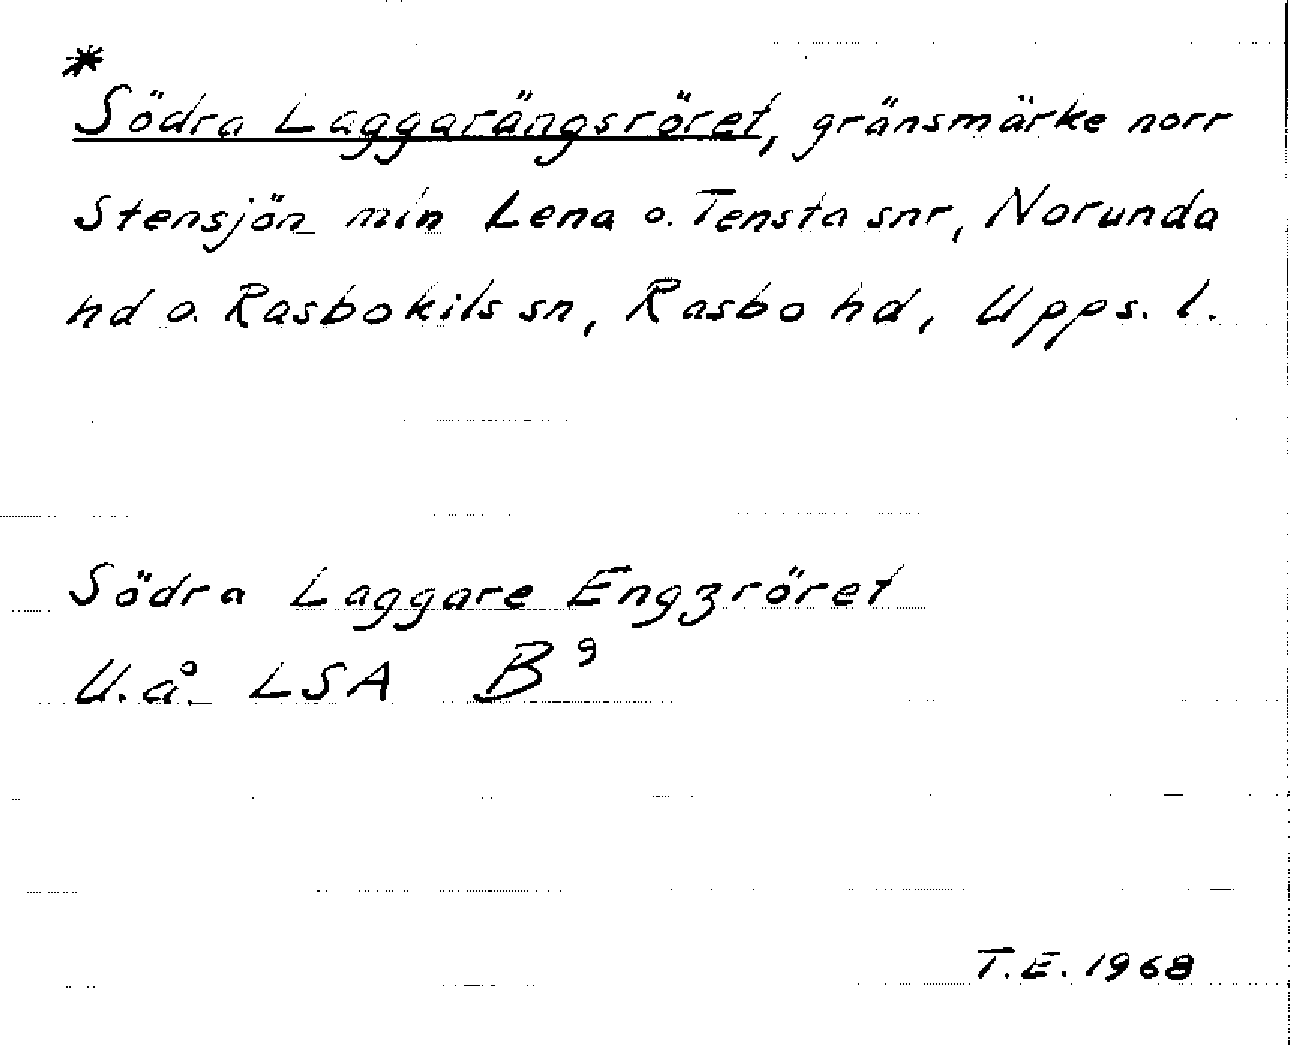 *
Södra Laggarängsröret, gränsmärke norr
Stensjön min Lena o. Tensta snr, Norunda
hd o. Rasbokils sn, Rasbo hd, Upps. l.
Södra Laggare Engzröret
U.å. LSA B⁹
T.E. 1968